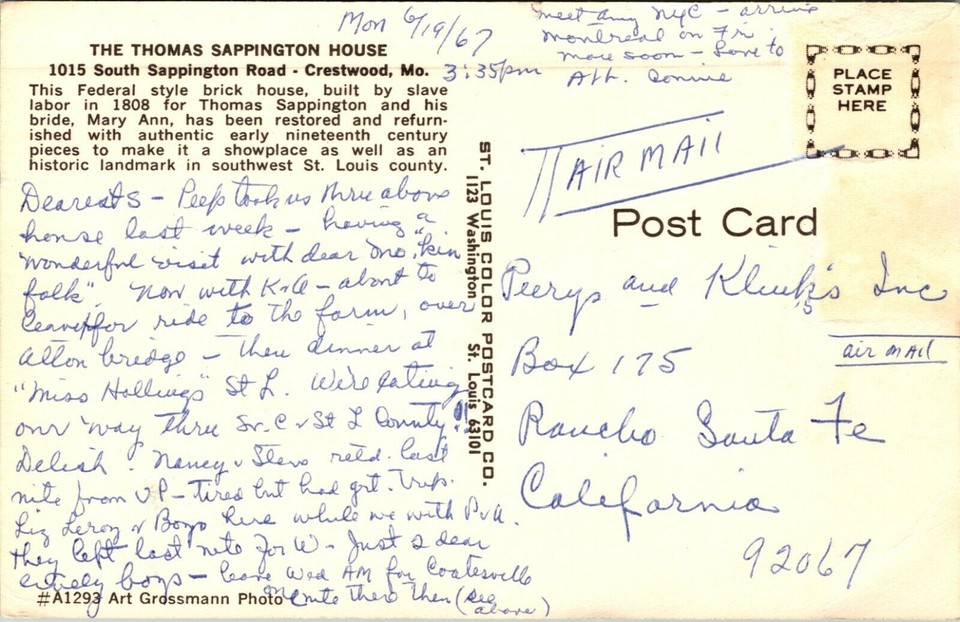 Mon 6/19/67
3:35pm
THE THOMAS SAPPINGTON HOUSE
1015 South Sappington Road - Crestwood, Mo.
This Federal style brick house, built by slave
labor in 1808 for Thomas Sappington and his
bride, Mary Ann, has been restored and refurn-
ished with authentic early nineteenth century
pieces to make it a showplace as well as an
historic landmark in southwest St. Louis county.
Dearests - Peeps took us thru above
house last week - having a
wonderful visit with dear Mo. "kin
folk". Now with K & A - about to
leave for ride to the farm, over
Alton bridge - then dinner at
"Miss Hollings" St L. We're eating
our way thru St. C & St L County!!
Delish. Nancy & Steve retd. last
nite from UP - tired but had grt. trip.
Liz Leroy & Boys here while we with P & A.
They left last nite for W - Just 2 dear
lively boys - leave Wed AM for Coatesville
one nite there then (see
above)
#A1293 Art Grossmann Photo
meet Amy NYC - arrive
Montreal on Fri.
more soon - Love to
All. Connie
ST. LOUIS COLOR POSTCARD CO.
1123 Washington St. Louis 63101
PLACE
STAMP
HERE
AIR MAIL
Post Card
Peerys and Klink's Inc
Box 175
air MAIL
Rancho Santa Fe
California
92067